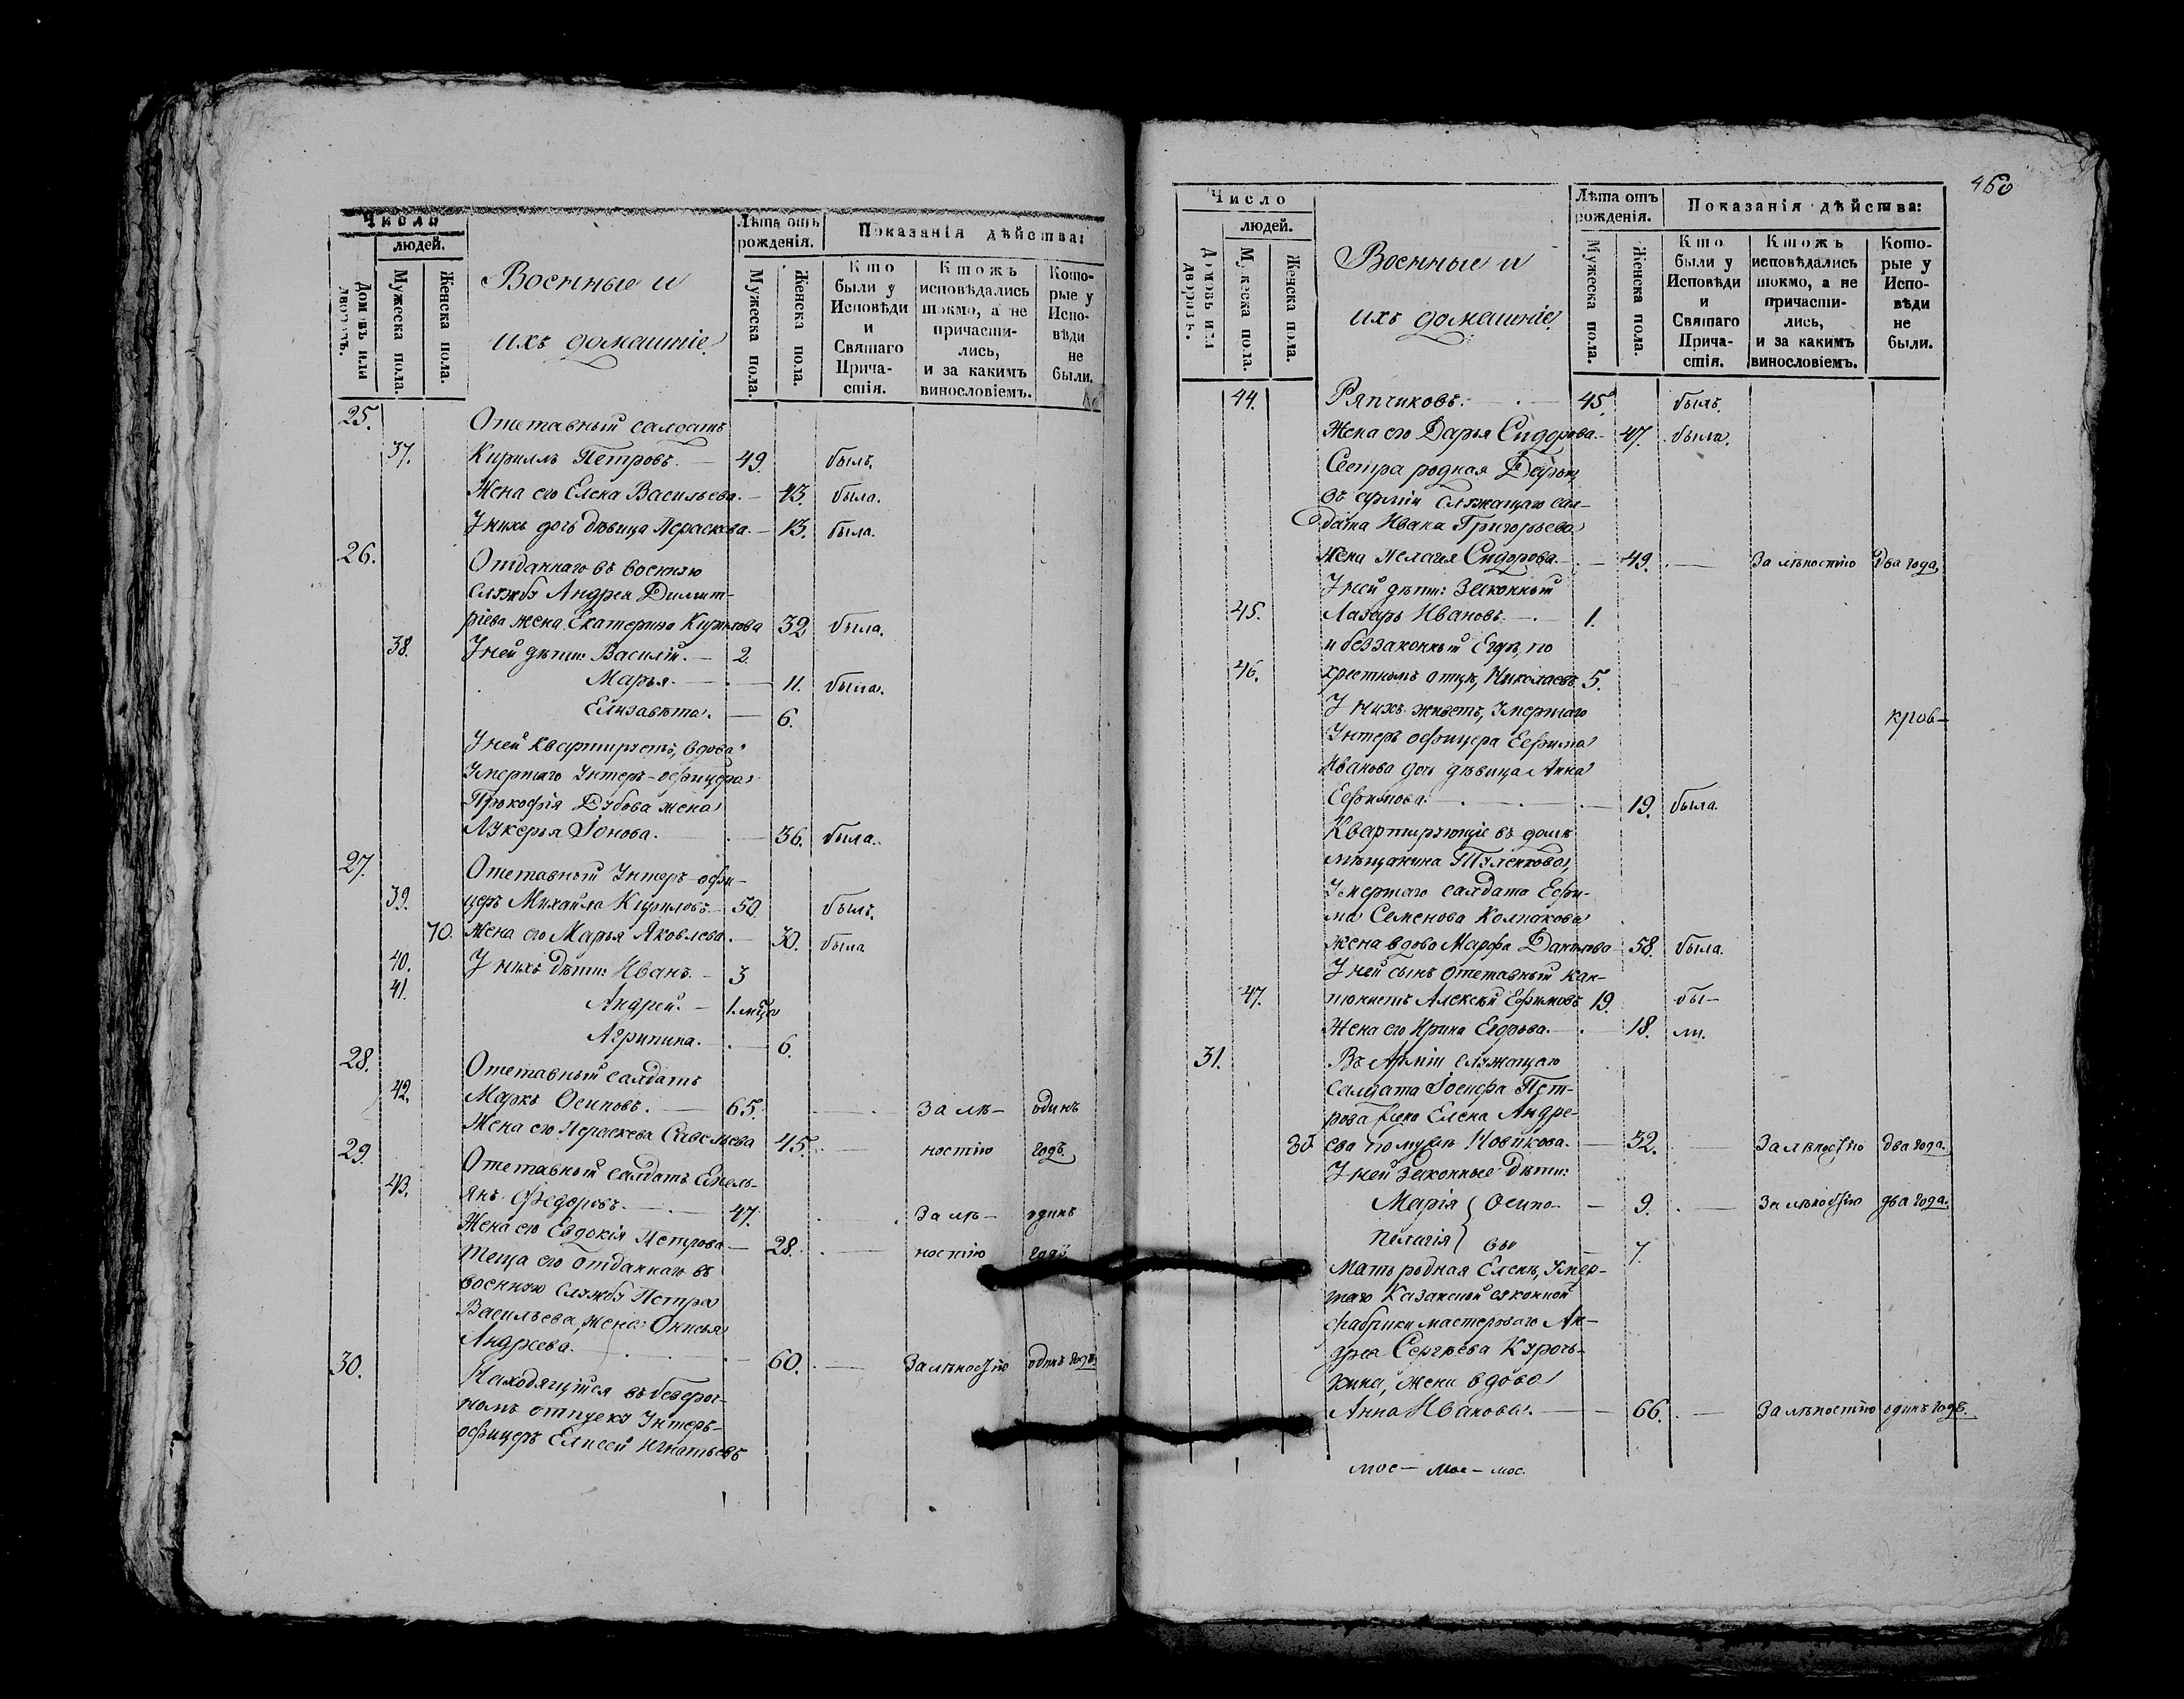 Число
людей.
Домовъ или дворовъ.
Мужеска пола.
Женска пола.
Военные и
ихъ домашніе.
Лѣта отъ рожденія.
Мужеска пола.
Женска пола.
Показанія дѣйства:
Кто были у Исповѣди и Святаго Причастія.
Ктожъ исповѣдались токмо, а не причастились, и за какимъ винословіемъ.
Которые у Исповѣди не были.
25. Отставный салдатъ
37. Кириллъ Петровъ. 49. былъ.
Жена его Елена Васильева. 43. была.
У нихъ дочь дѣвица Параскева. 13. была.
26. Отданнаго въ военную
службу Андрея Димит-
ріева жена Екатерина Кирилова 32 была.
38. У ней дѣти: Василій. 2.
Марья. 11. была.
Елизавета. 6.
У ней квартируетъ, вдова
Умершаго Унтеръ-офицера
Прокофія Дубова жена
Лукерья Іонова. 36. была.
27. Отставный Унтеръ-офи-
39. церъ Михайла Кириловъ 50. былъ.
70. Жена его Марья Яковлева. 30. была
40. У нихъ дѣти: Иванъ. 3
41. Андрей. 1. мца
Агрипина. 6.
28. Отставный салдатъ
42. Маркъ Осиповъ. 65. За лѣ- одинъ
Жена его Параскева Савельева 45. ностію годъ.
29. Отставный салдатъ Емель-
43. янъ Ѳедоровъ. 47. За лѣ- одинъ
Жена его Евдокія Петрова 28. ностію годъ
Теща его отданнаго въ
военную службу Петра
Васильева, жена Онисья
Андреева. 60. За лѣностію одинъ годъ
30. Находящійся въ безсроч-
номъ отпуску Унтеръ-
офицеръ Елисей Игнатьевъ
460
Число
людей.
Домовъ или дворовъ.
Мужеска пола.
Женска пола.
Военные и
ихъ домашніе.
Лѣта отъ рожденія.
Мужеска пола.
Женска пола.
Показанія дѣйства:
Кто были у Исповѣди и Святаго Причастія.
Ктожъ исповѣдались токмо, а не причастились, и за какимъ винословіемъ.
Которые у Исповѣди не были.
44. Ряпчиковъ. 45. былъ.
Жена его Дарья Сидорова. 47. была.
Сестра родная Дарьи,
въ арміи служащаго сал-
дата Ивана Григорьева
жена Пелагія Сидорова. 49. За лѣностію Два года,
У ней дѣти: Законный
45. Лазарь Ивановъ. 1.
и беззаконный Егоръ, по
46. крестномъ отцѣ, Николаевъ 5.
У нихъ живетъ, умершаго кров-
Унтеръ офицера Ефима
Иванова дочь дѣвица Анна
Ефимова. 19. была.
Квартирующіе въ домѣ
мѣщанина
Умершаго салдата Ефи-
ма Семенова Колпакова
жена вдова Марфа Данилова 58. была.
У ней сынъ отставный кан-
47. тонистъ Алексѣй Ефимовъ 19. бы-
Жена его Ирина Егорова. 18. ли.
31. Въ Арміи служащаго
Салдата Іосифа Пет-
рова жена Елена Андре-
30 ева по мужѣ Новикова. 32. За лѣностію два года.
У ней Законные дѣти:
Марія Осипо- 9. За лѣностію два года.
Пелагія вы 7.
Мать родная Елены, Умер-
шаго Казанской суконной
фабрики мастероваго Ан-
дрея Сергѣева Куроч-
кина, жена вдова
Анна Иванова. 66. За лѣностію одинъ годъ.
мос- мос- мос.